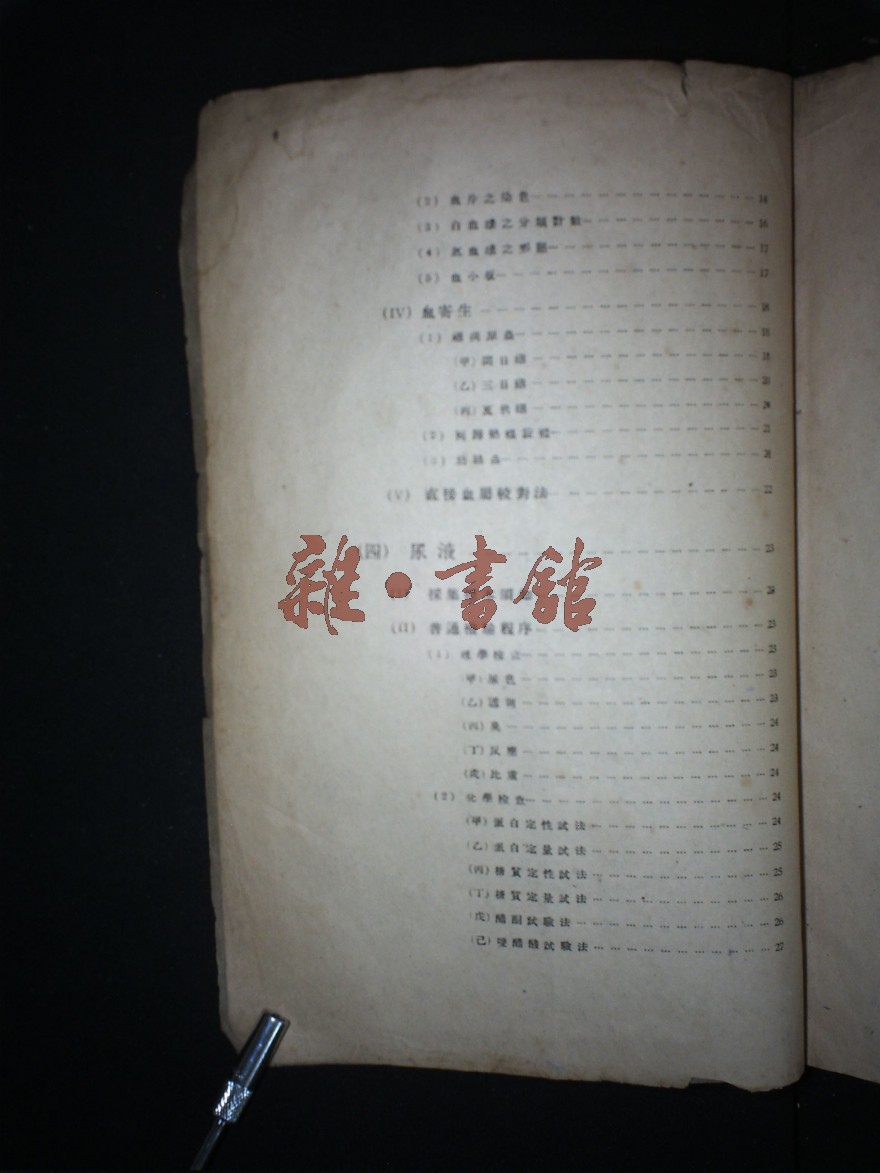 (2) 血片之染色 14
(3) 白血球之分類計數 16
(4) 血球之 17
(5) 血小板 17
(IV) 血寄生 18
(1) 原蟲 18
(甲) 間日 18
(乙) 三日 20
(丙)
(2) 21
21
(V) 直接血 對法 22
(四) 尿液 23
採集 23
(II) 普通 程序 23
(1) 理學檢查 23
(甲) 尿色 23
(乙) 透明 23
(丙) 臭 24
(丁) 反應 24
(戊) 比重 24
(2) 化學檢查 24
(甲) 蛋白定性試法 24
(乙) 蛋白定量試法 25
(丙) 糖質定性試法 25
(丁) 糖質定量試法 26
(戊) 醋酮試驗法 26
(己) 雙醋酸試驗法 27
雜·書館